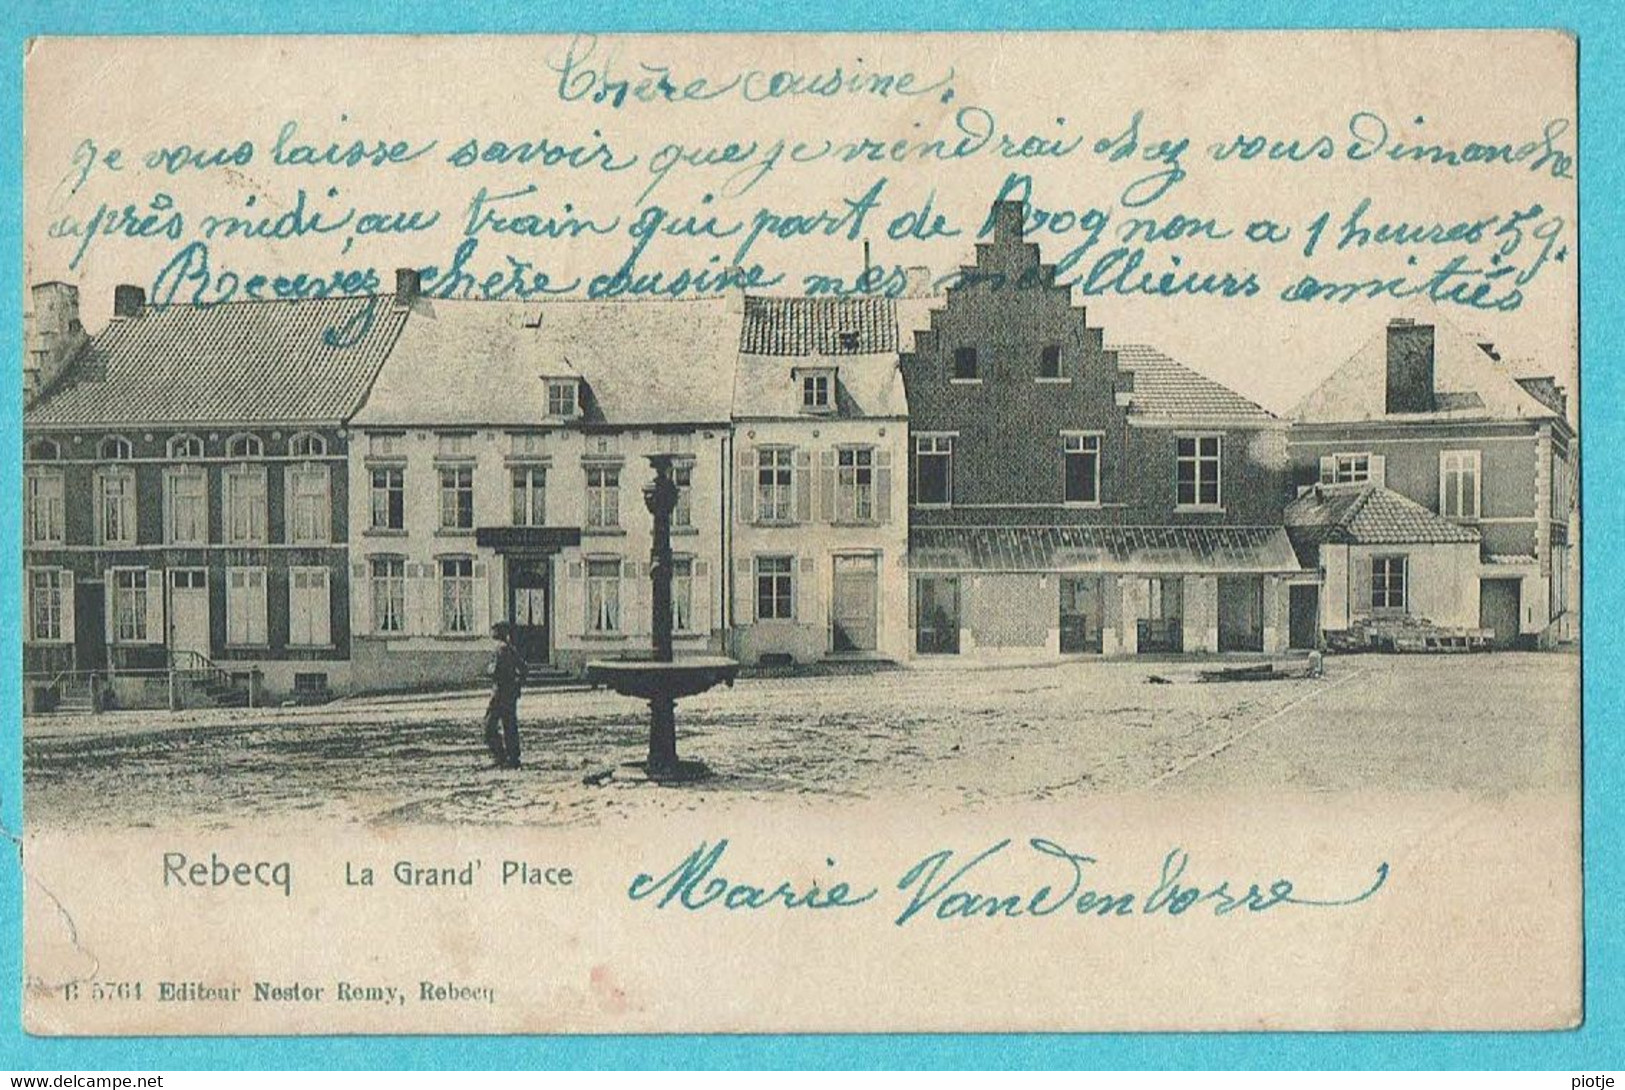 Chère cousine.
Je vous laisse savoir que je viendrai chez vous Dimanche
après midi, au train qui part de Rognon a 1 heures 59.
Recevez chère cousine mes meillieurs amitiés
Rebecq La Grand' Place
Marie Vandenborre
B 5764 Editeur Nestor Remy, Rebecq
© for delcampe.net
piotje